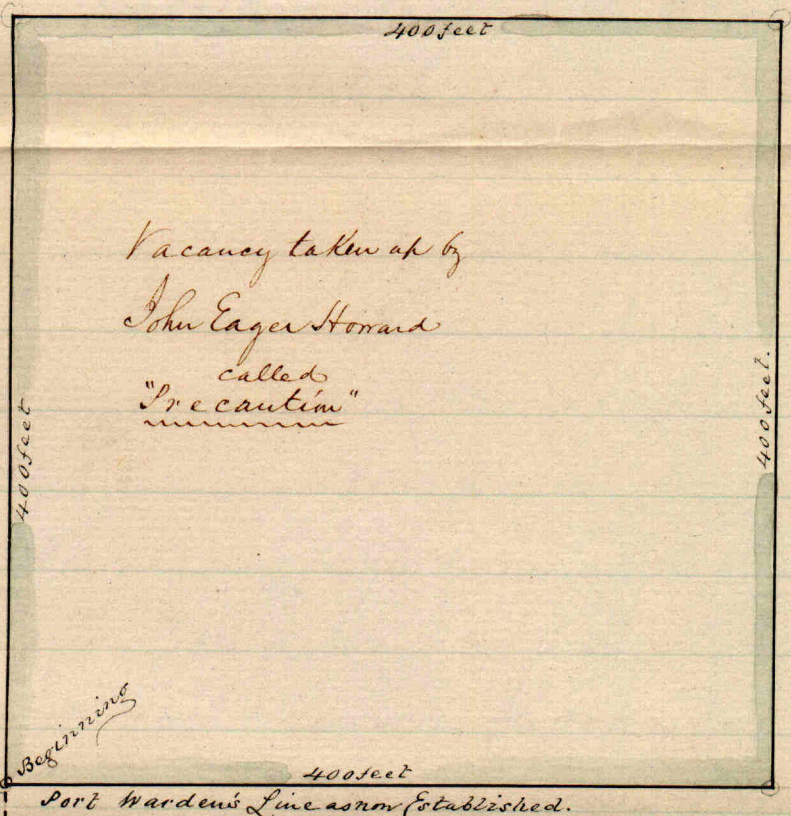 400 feet
Vacancy taken up by
John Eager Howard
called
"Precaution"
400 feet
400 feet.
Beginning
400 feet
Port Warden's Line as now Established.